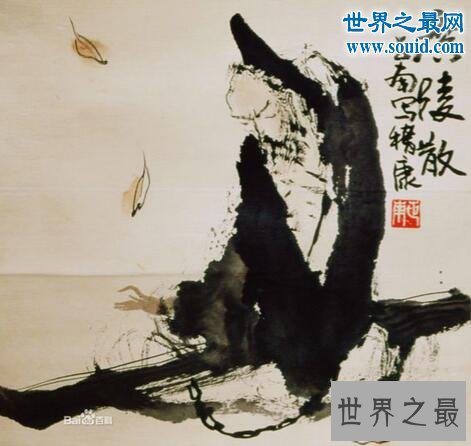 世界之最网
www.souid.com
陵散
南写嵇康
Bai百科
世界之最